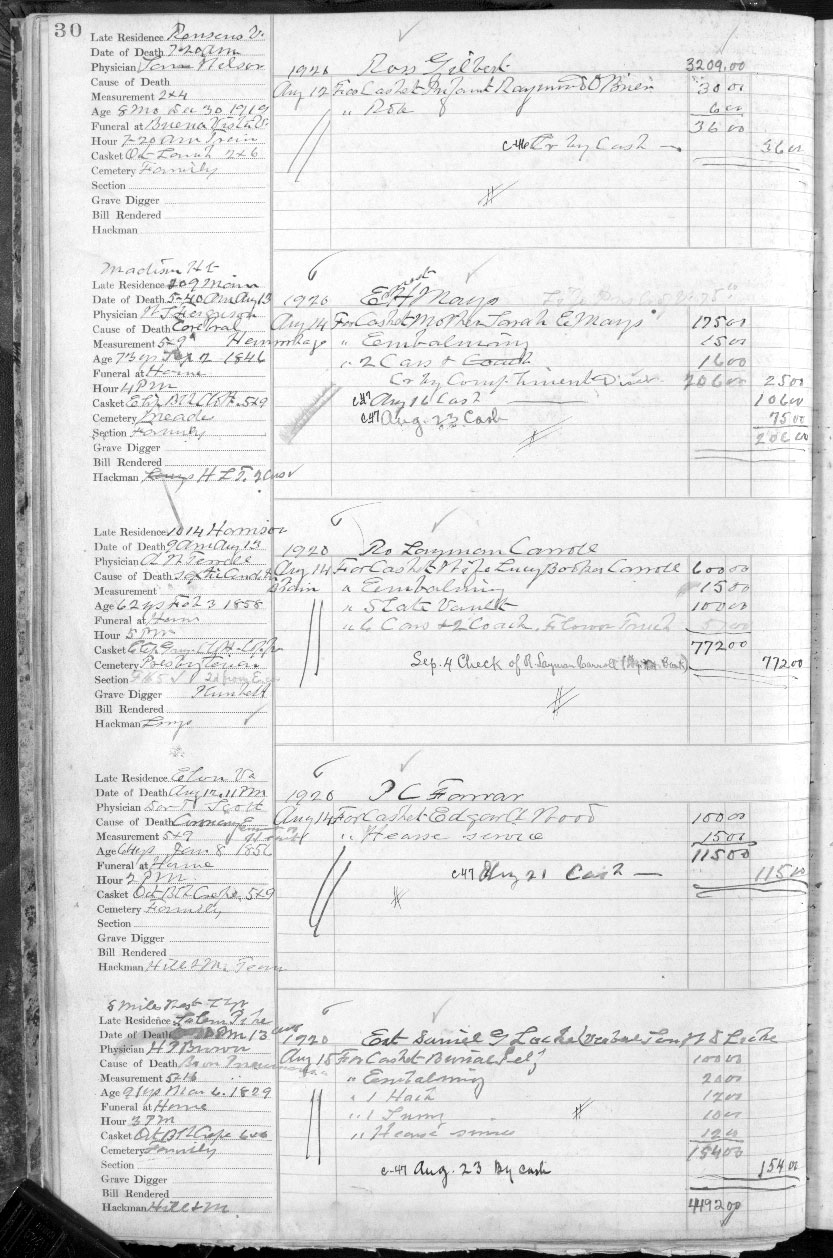 30
Late Residence Ronsens V.
Date of Death 7-20 AM
Physician Nelson
1920 Roy Gilbert 3209.00
Cause of Death
Aug 12 For Casket Infant Raymond O'Brien 30 00
Measurement 2x4
Age 8 Mo Dec 30 1919
" Box 6 00
Funeral at Buena Vista V.
36 00
Hour 7-20 AM Train
c-46 Cr by Cash — 36 00
Casket Oct Lamb 2x6
Cemetery Family
Section
Grave Digger
Bill Rendered
Hackman
Madison Ht
Late Residence 209 Main
Date of Death 5-40 AM Aug 13
1920 E H Mays
Physician Ferguson
Aug 14 For Casket Mother Sarah E. Mays 175 00
Cause of Death Cerebral Hemorrhage
Measurement 5x9
" Embalming 15 00
Age 73 ys Sep 2 1846
" 2 Cars & Coach 16 00
Funeral at Home
Cr by Compliment Disc. 206 00 25 00
Hour 4 PM
c47 Aug 16 Cash 106 00
Casket Eliz Blk Cloth 5x9
c47 Aug. 23 Cash 75 00
Cemetery
206 00
Section Family
Grave Digger
Bill Rendered
Hackman H L T. 2 Cars
Late Residence 1014 Harrison
Date of Death 9 AM Aug 13
1920 Ro Layman Carroll
Physician
Aug 14 For Casket Wife Lucy Booker Carroll 600 00
Cause of Death
Measurement
" Embalming 15 00
Age 62 ys Feb 3 1858
" Slate Vault 100 00
Funeral at Home
" 6 Cars & 2 Coach, Flower Truck 57 00
Hour 5 PM
772 00
Casket
Cemetery Presbyterian
Sep. 4 Check of R. Layman Carroll 772 00
Section
Grave Digger
Bill Rendered
Hackman
Late Residence Elon Va
Date of Death Aug 12, 11 PM
1920 P C Farrar
Physician Scott
Aug 14 For Casket Edgar A Wood 100 00
Cause of Death
Measurement 5x9
" Hearse service 15 00
Age Jan 8 1856
115 00
Funeral at Home
Hour 2 PM
c47 Aug 21 Cash — 115 00
Casket Oct Blk Crape 5x9
Cemetery Family
Section
Grave Digger
Bill Rendered
Hackman Hill & M. Team
5 Miles West
Late Residence Salem Pike
Date of Death PM 13
1920 Est Daniel G Locke
Physician H P Brown
Aug 15 For Casket Burial Self 100 00
Cause of Death
Measurement 5x10
" Embalming 20 00
Age 91 ys Mar 6. 1829
" 1 Hack 12 00
Funeral at Home
" 1 10 00
Hour 3 PM
" Hearse 12 00
Casket Oct Blk Crape 6x6
154 00
Cemetery Family
c-47 Aug. 23 By cash 154 00
Section
Grave Digger
Bill Rendered
Hackman Hill & M.
4492 00